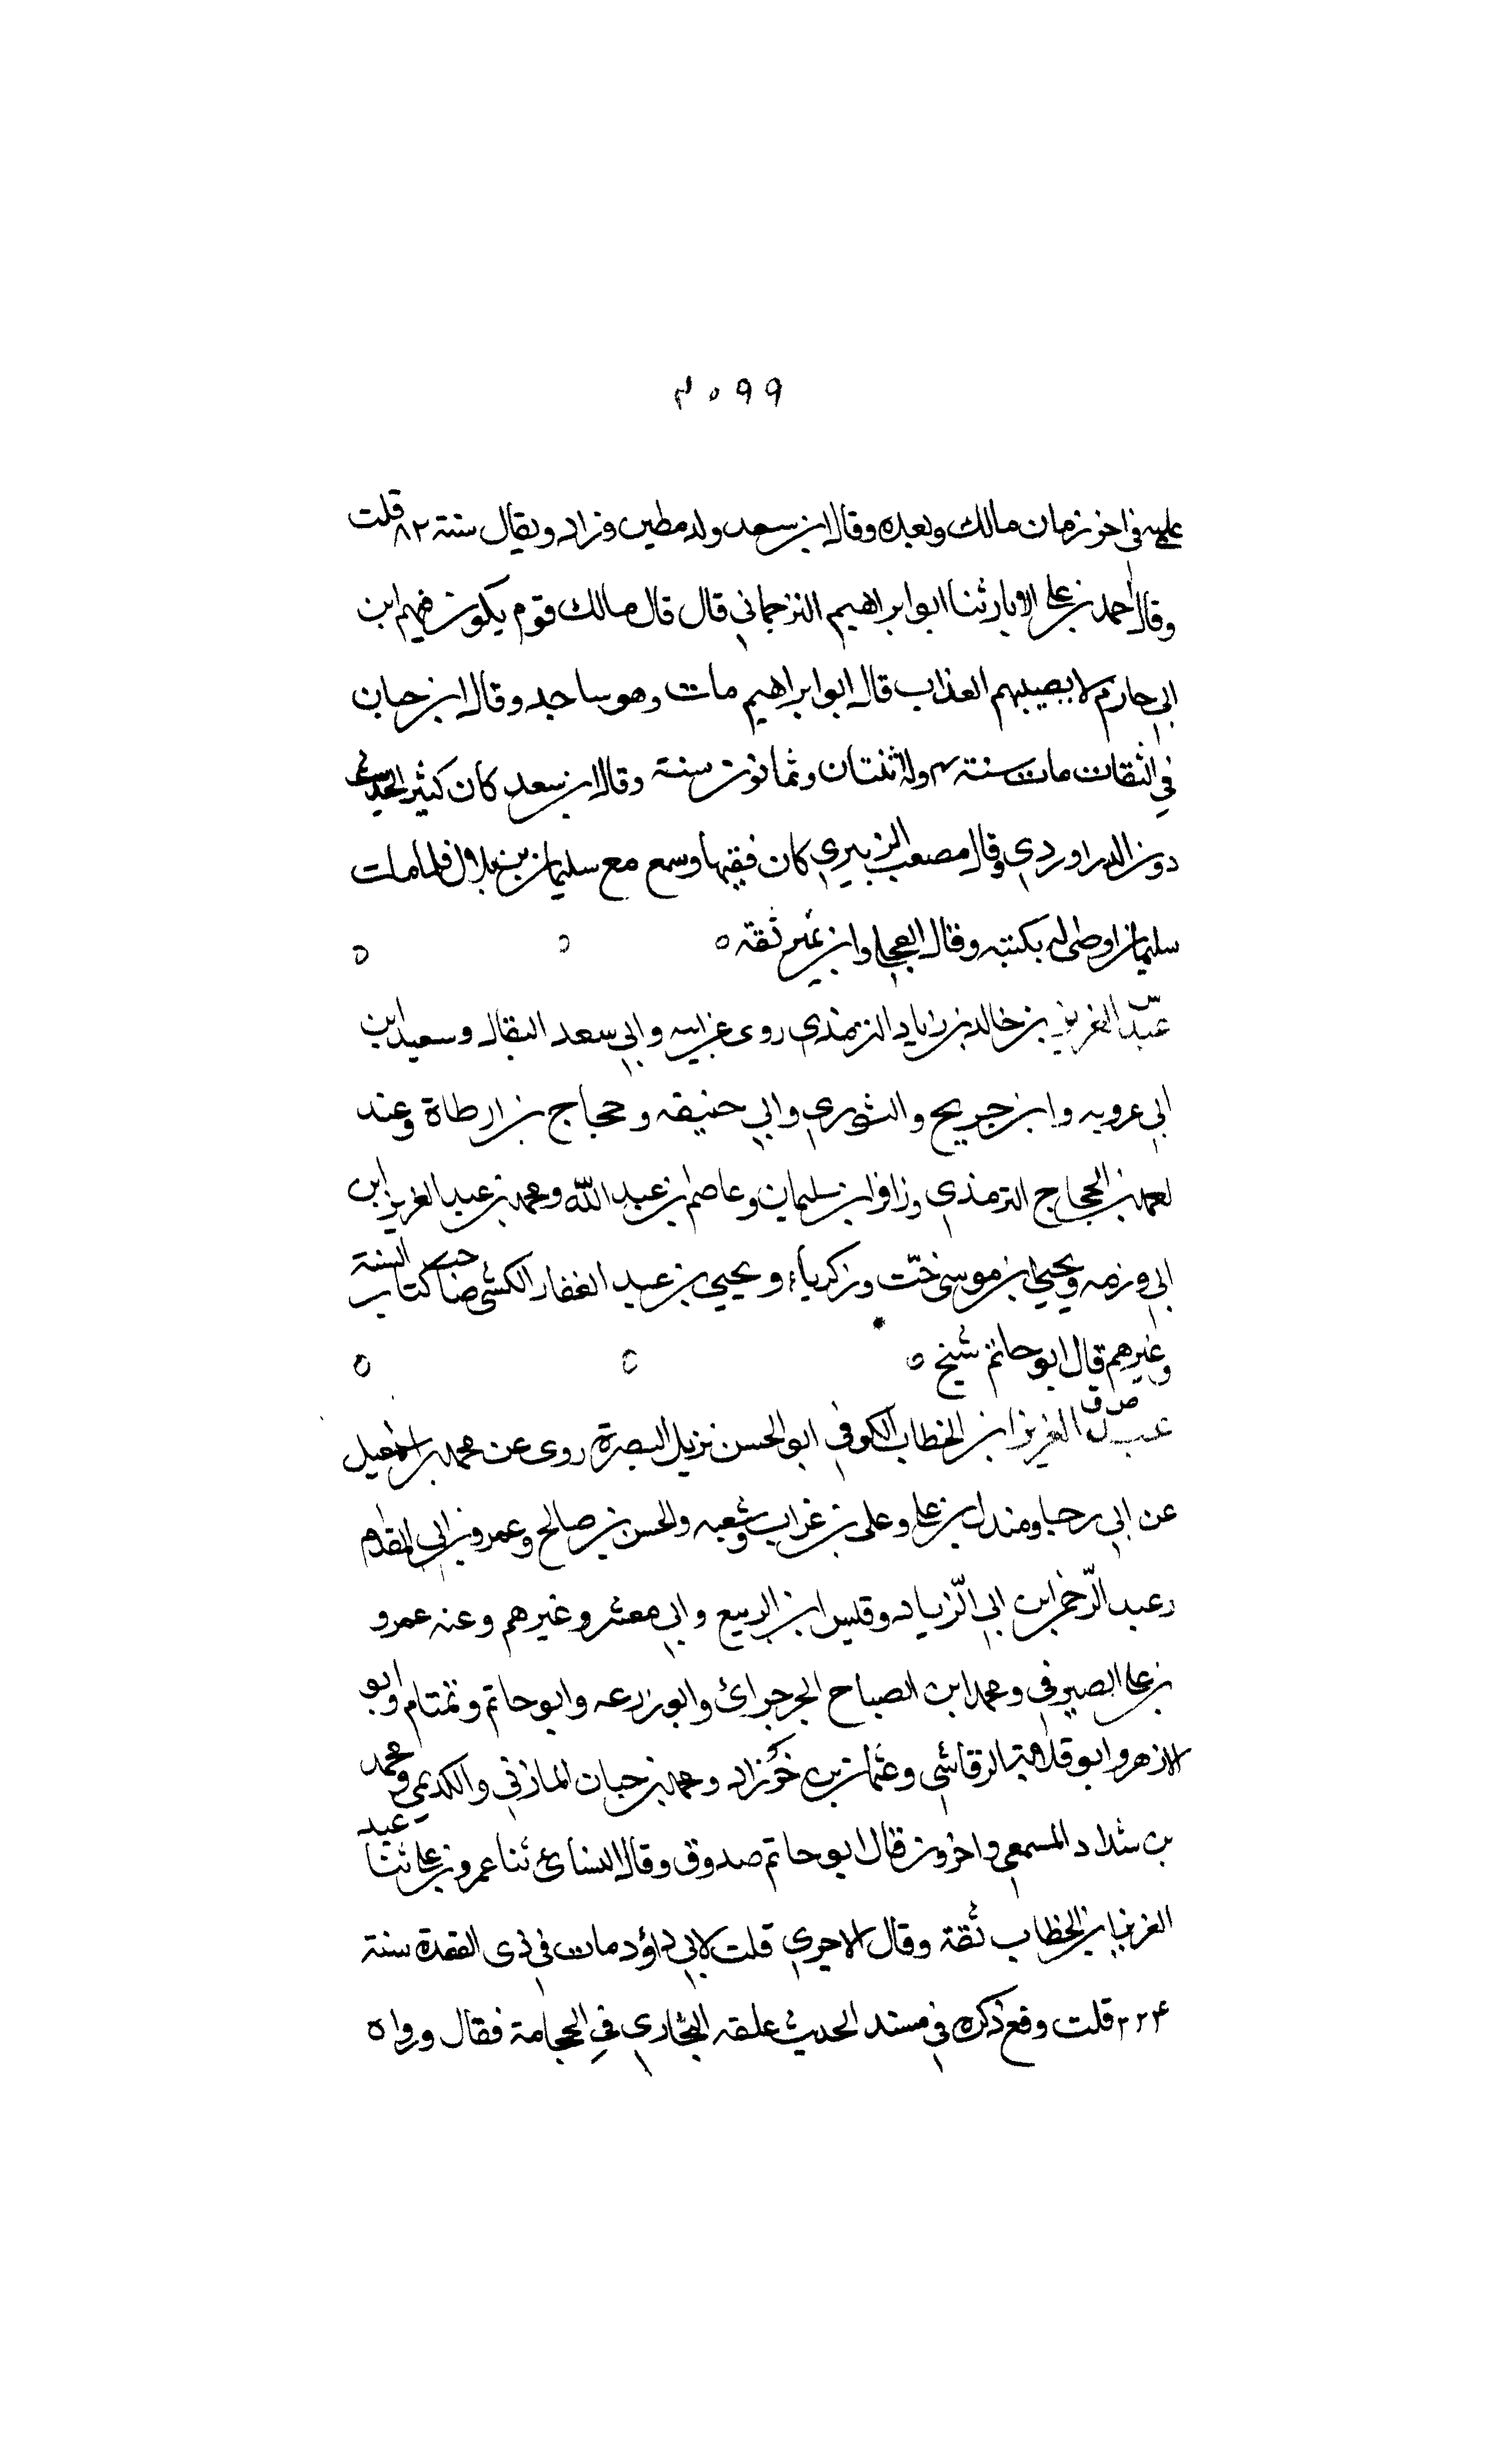 ٢٠٩٩
عليه في اخر زمان مالك وبعده وقال ابن سعد ولد مطين وزاد ويقال سنة ٨٢ قلت
وقال احمد بن علي الابار ثنا ابو ابراهيم الترجماني قال قال مالك قوم يكون فيهم ابن
ابي حازم لا يصيبهم العذاب قال ابو ابراهيم مات وهو ساجد وقال ابن حبان
في الثقات مات سنة ٤ وله اثنتان وثمانون سنة وقال ابن سعد كان كثير الحديث
دون الدراوردي وقال مصعب الزبيري كان فقيها وسمع مع سليمان بن بلال فلما مات
سليمان اوصى له بكتبه وقال العجلي وابن نمير ثقة ه
س
عبد العزيز بن خالد بن زياد الترمذي روى عن ابيه وابي سعد البقال وسعيد ابن
ابي عروبه وابن جريج والثوري وابي حنيفه وحجاج بن ارطاة وعنه
بن الحجاج الترمذي وزافر ابن سليمان وعاصم بن عبد الله ومحمد بن عبد العزيز ابن
ابي رزمه ويحيى ابن موسى خت وزكرياء ويحيى بن عبد الغفار الكشي صاحب كتاب السنة
وغيرهم قال ابو حاتم شيخ ه
ص ق
عبد العزيز ابن الخطاب الكوفي ابو الحسن نزيل البصرة روى عن محمد بن اسمعيل
عن ابي رحيا ومندل بن علي وعلى بن غراب وشعبه والحسن بن صالح وعمرو بن ابي المقدام
وعبد الرحمن ابن ابي الزياد وقيس ابن الربيع وابي معشر وغيرهم وعنه عمرو
بن علي الصيرفي ومحمد ابن الصباح الجرجرائ وابو زرعه وابو حاتم وتمتام وابو
الازهر وابو قلابة الرقاشي وعثمان بن خرزاد ومحمد بن حبان المازني والكديمي ومحمد
بن شداد المسمعي واخرون قال ابو حاتم صدوق وقال النسائ ثنا عمرو بن علي ثنا عبد
العزيز ابن الخطاب ثقة وقال الاجري قلت لابي داؤد مات في ذى القعدة سنة
٢٢٤ قلت وقع ذكره في مسند الحديث علقه البخاري في الحجامة فقال ورواه